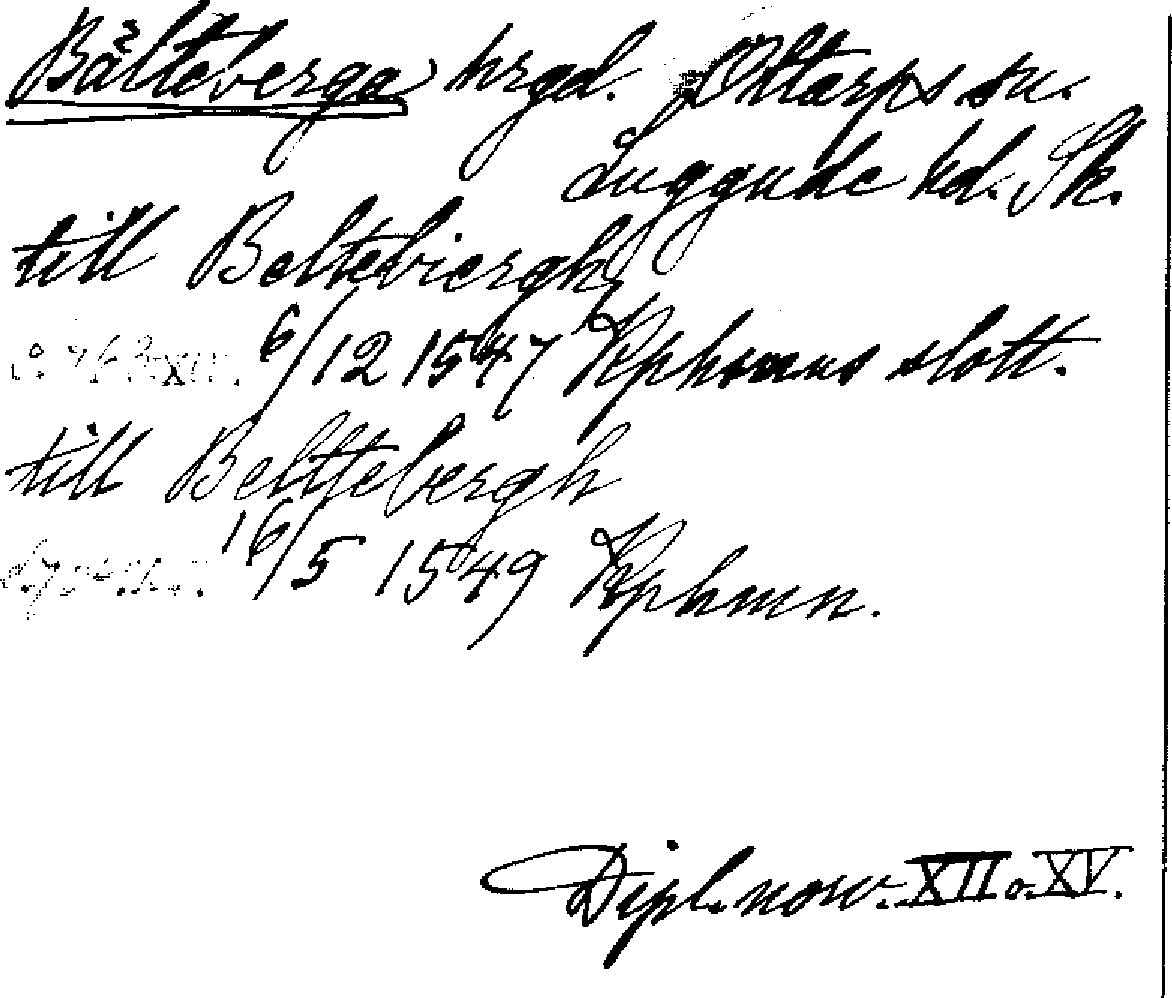 Bälteberga hrgd. Ottarps sn.
Luggude hd. Sk.
till Beltebiergh
6/12 1547 Kphmns slott.
till Belttebergh
16/5 1549 Kphmn.
Dipl. norv. XII o. XV.